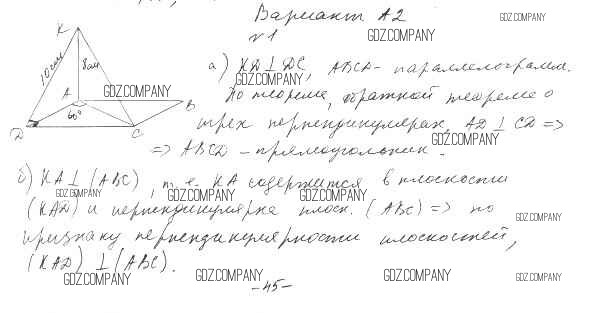 Вариант А2
GDZ.COMPANY
№1
GDZ.COMPANY
K
10 см
8 см
A
GDZ.COMPANY
B
60°
D
C
а) KD ⊥ DC, ABCD - параллелограмм.
GDZ.COMPANY
По теореме, обратной теореме о
трех перпендикулярах, AD ⊥ CD =>
GDZ.COMPANY
=> ABCD - прямоугольник.
б) KA ⊥ (ABC), т. е. KA содержится в плоскости
GDZ.COMPANY GDZ.COMPANY GDZ.COMPANY
(KAD) и перпендикулярна плоск. (ABC) => по
GDZ.COMPANY
признаку перпендикулярности плоскостей,
(KAD) ⊥ (ABC).
GDZ.COMPANY GDZ.COMPANY GDZ.COMPANY GDZ.COMPANY
-45-